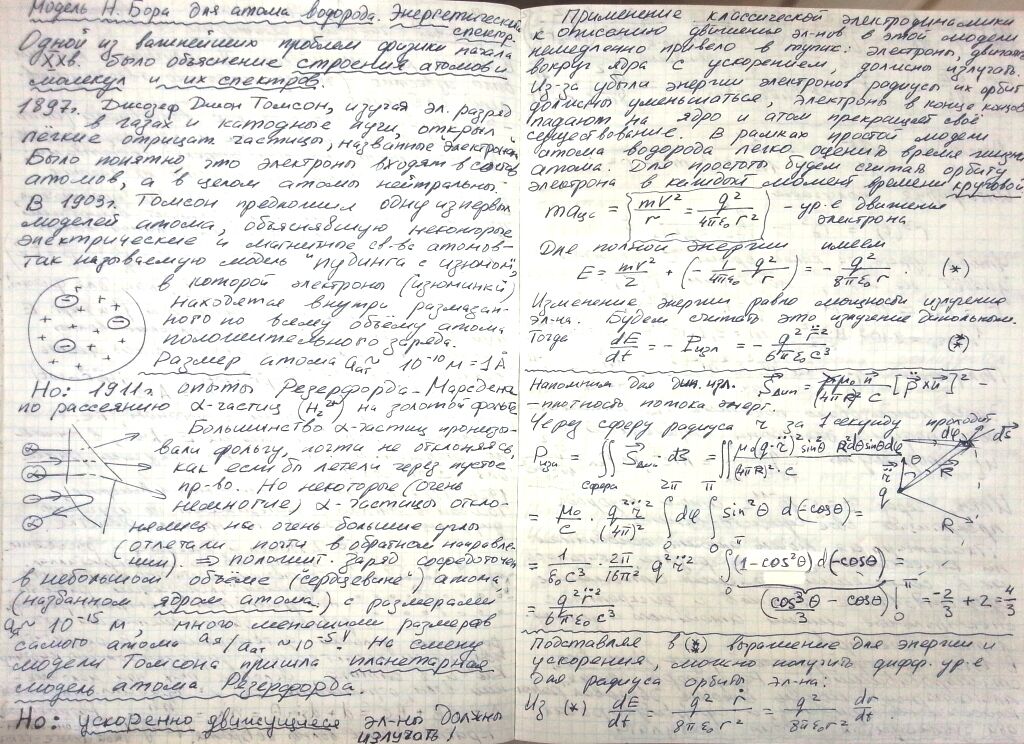 Модель Н. Бора для атома водорода. Энергетический
спектр.
Одной из важнейших проблем физики начала
XXв. было объяснение строения атомов и
молекул и их спектров.
1897г. Джозеф Джон Томсон, изучая эл. разряд
в газах и катодные лучи, открыл
лёгкие отрицат. частицы, названные электрон
Было понятно, что электроны входят в состав
атомов, а в целом атомы нейтральны.
В 1903г. Томсон предложил одну из первых
моделей атома, объяснявшую некоторые
электрические и магнитные св-ва атомов –
так называемую модель "пудинга с изюмом",
в которой электроны (изюминки)
находятся внутри размазан-
ного по всему объёму атома
положительного заряда.
Размер атома aат ~ 10⁻¹⁰ м = 1 Å
Но: 1911г. опыты Резерфорда-Марсдена
по рассеянию α-частиц (He²⁺) на золотой фольге
Большинство α-частиц пронизы-
вали фольгу, почти не отклоняясь,
как если бы летели через пустое
пр-во... Но некоторые (очень
немногие) α-частицы откло-
нялись на очень большие углы
(отлетали почти в обратном направле-
нии). ⇒ положит. заряд сосредоточен
в небольшом объёме ("сердцевине") атома
(названном ядром атома) с размерами
aя ~ 10⁻¹⁵ м, много меньшими размеров
самого атома aя/aат ~ 10⁻⁵! На смену
модели Томсона пришла планетарная
модель атома Резерфорда.
Но: ускоренно движущиеся эл-ны должны
излучать!
Применение классической электродинамики
к описанию движения эл-нов в этой модели
немедленно привело в тупик: электроны, движась
вокруг ядра с ускорением, должны излучать.
Из-за убыли энергии электронов радиусы их орбит
должны уменьшаться, электроны в конце концов
падают на ядро и атом прекращает своё
существование. В рамках простой модели
атома водорода легко оценить время жизни
атома. Для простоты будем считать орбиту
электрона в каждый момент времени круговой
maцс = { mV²/r = q²/4πε₀r² } – ур-е движения
электрона
Для полной энергии имеем
E = mv²/2 + (– 1/4πε₀ q²/r) = – q²/8πε₀r . (*)
Изменение энергии равно мощности излучения
эл-на. Будем считать это излучение дипольным.
Тогда dE/dt = – Pизл = – q² r̈²/6πε₀c³ (**)
Напомним для дип. изл. S⃗дип = μ₀ n⃗/(4πR)² c [p̈⃗ × n⃗]² –
– плотность потока энерг.
Через сферу радиуса r за 1 секунду проходит
Pизл = ∯ S⃗дип · dS⃗ = ∬ μ₀(q·r̈)² sin²θ R² sinθ dθ dφ/(4πR)²·c
сфера
= μ₀/c · q² r̈²/(4π)² ∫₀²π dφ ∫₀π sin²θ d(–cosθ) =
= 1/ε₀c³ · 2π/16π² q² r̈² ∫₀π (1–cos²θ) d(–cosθ) =
= q² r̈²/6πε₀c³ (cos³θ/3 – cosθ)|₀π = –2/3 + 2 = 4/3
dφ dS⃗ R⃗ θ r̈⃗ q R
Подставляя в (**) выражение для энергии и
ускорения, можно получить дифф. ур-е
для радиуса орбиты эл-на:
Из (*) dE/dt = q² ṙ/8πε₀r² = q²/8πε₀r² dr/dt .